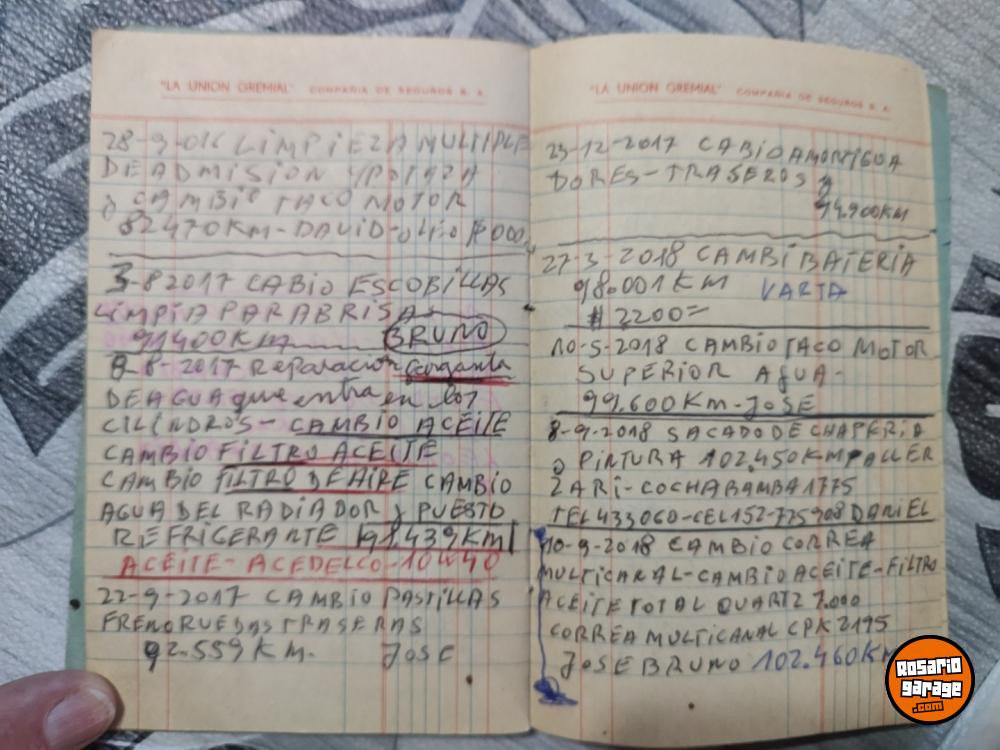 "LA UNION GREMIAL" COMPAÑIA DE SEGUROS S. A.
28-9-016 LIMPIEZA MULTIPLE
DE ADMISION Y
y CAMBIO TACO MOTOR
82470KM-DAVID-
3-82017 CABIO ESCOBILLAS
LIMPIA PARABRISA
91400KM BRUNO
8-2017 Reparacion Garganta
DE AGUA que entra en los
CILINDROS-CAMBIO ACEITE
CAMBIO FILTRO ACEITE
CAMBIO FILTRO DE AIRE CAMBIO
AGUA DEL RADIADOR y PUESTO
REFRIGERANTE 91.439KM
ACEITE-ACEDELCO-10W40
22-9-2017 CAMBIO PASTILLAS
FRENO RUEDAS TRASERAS
92.559KM. JOSE
"LA UNION GREMIAL" COMPAÑIA DE SEGUROS S. A.
23-12-2017 CABIO AMORTIGUA
DORES-TRASEROS
94.900KM
27-3-2018 CAMBI BATERIA
98.001KM VARTA
$ 2200=
10-5-2018 CAMBIO TACO MOTOR
SUPERIOR AGUA-
99.600KM-JOSE
8-9-2018 SACADO DE CHAPERIA
y PINTURA 102.450KM
ZARI-COCHABAMBA 1775
TEL 433060-CEL152-775908 DANIEL
10-9-2018 CAMBIO CORREA
MULTICARAL-CAMBIO ACEITE-FILTRO
ACEITE TOTAL QUARTZ 7.000
CORREA MULTICANAL CPK2195
JOSE BRUNO 102.460KM
ROSARIO
garage
.com